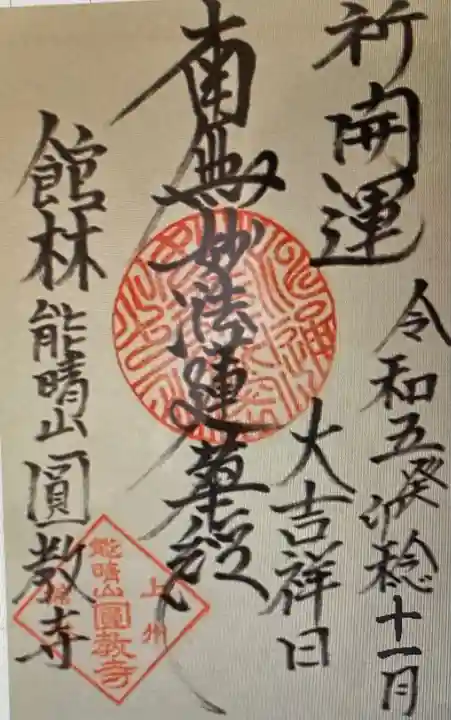 祈開運
令和五癸卯稔十一月
大吉祥日
南無妙法蓮華経
館林 能晴山 圓教寺
上州
能晴山圓教寺